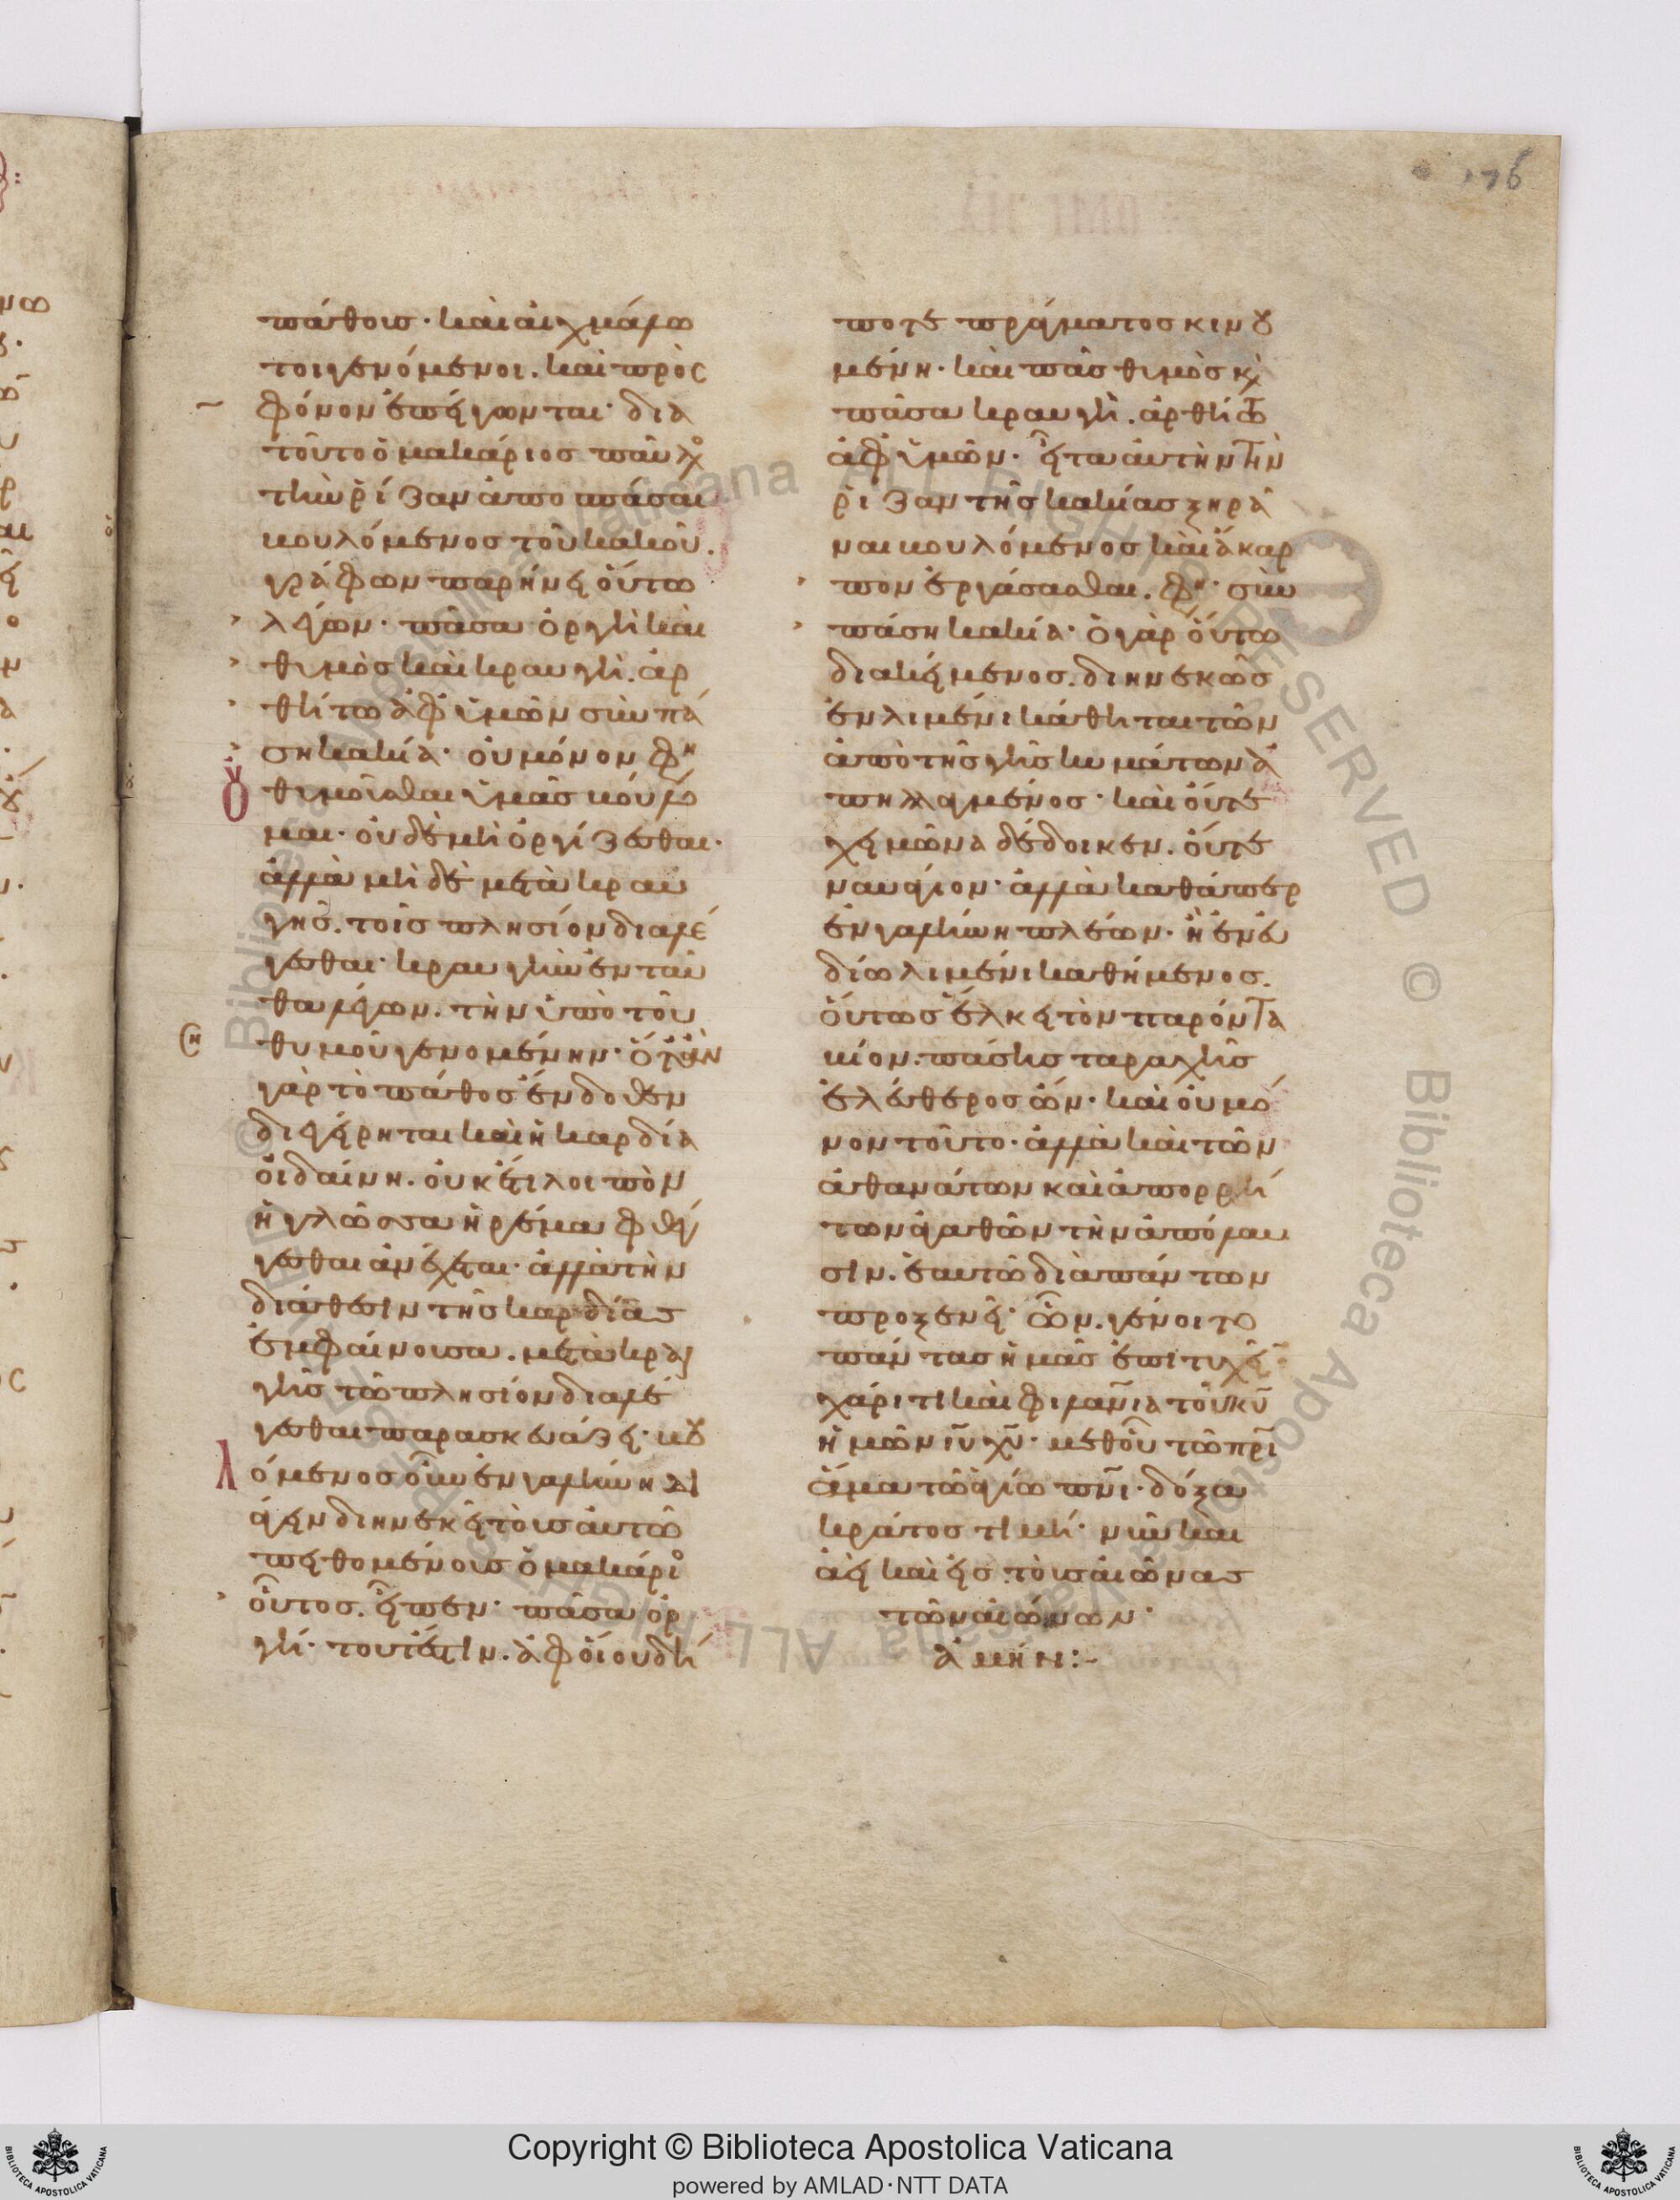 176
πάθους· καὶ αἰχμάλω
τοι γενόμενοι. καὶ πρὸς
φόνον ἐπείγωνται· δια
τοῦτο ὁ μακάριος παῦλο
τὴν ῥίζαν ἀποσπάσαι
βουλόμενος τοῦ κακοῦ.
γράφων παρήνει οὕτω
λέγων· πᾶσα ὀργὴ καὶ
θυμὸς καὶ κραυγὴ. ἀρ
θήτω ἀφ ὑμῶν σὺν πά
ση κακία· οὐ μόνον φη
θυμοῦσθαι ὑμᾶς βούλο
μαι· οὐδὲ μὴ ὀργίζεσθαι·
ἀλλὰ μὴ δὲ μετὰ κραυ
γῆς. τοῖς πλησίον διαλέ
γεσθαι· κραυγὴν ἐνταῦ
θα λέγων. τὴν ὑπὸ τοῦ
θυμοῦ γενομένην· ὅταν
γὰρ τὸ πάθος ἔνδοθεν
διεγέρηται καὶ ἡ καρδία
οἰδαίνη. οὐκέτι λοιπὸν
ἡ γλῶσσα ἠρέμα φθέγ
γεσθαι ἀνέχεται· ἀλλὰ τὴν
διάθεσιν τῆς καρδίας
ἐμφαίνουσα. μετὰ κραυ
γῆς τῶ πλησίον διαλέ
γεσθαι παρασκευάζει· βου
λόμενος οὖν ἐν γαλήνη δι
άγειν διηνεκεῖ τοὺς αὐτῶ
πειθομένους ὁ μακάριο
οὗτος. εἶπεν· πᾶσα ὀρ
γή· τουτέστιν. ἀφ οἱουδή
ποτε πράγματος κινου
μένη· καὶ πᾶς θυμὸς κ
πᾶσα κραυγὴ. ἀρθήτω
ἀφ ὑμῶν· εἶτα αὐτὴν τὴν
ῥίζαν τῆς κακίας ξηρᾶ
ναι βουλόμενος καὶ ἄκαρ
πον ἐργάσασθαι. φη· σὺν
πάση κακία· ὁ γὰρ οὕτω
διακείμενος. διηνεκῶς
ἐν λιμένι κάθηται τῶν
ἀπὸ τῆς γῆς κυμάτων ἀ
πηλλαγμένος· καὶ οὔτε
χειμῶνα δέδοικεν. οὔτε
ναυάγιον· ἀλλὰ καθάπερ
ἐν γαλήνη πλέων· ἢ ἐν εὐ
δίω λιμένι καθήμενος.
οὕτως ἕλκει τὸν παρόντα
βίον. πάσης ταραχῆς
ἐλεύθερος ὤν· καὶ οὐ μό
νον τοῦτο· ἀλλὰ καὶ τῶν
ἀθανάτων καὶ ἀπορρή
των ἀγαθῶν τὴν ἀπόλαυ
σιν. ἑαυτῶ διὰ πάντων
προξενεῖ· ὧν. γένοιτο
πάντας ἡμᾶς ἐπιτυχεῖ
χάριτι καὶ φιλανια τοῦ κυ
ἡμῶν ιυ χυ· μεθ οὗ τῶ πρι
ἅμα τῶ ἁγίω πνι· δόξα
κράτος τιμή· νῦν καὶ
ἀεὶ καὶ εἰς τοὺς αἰῶνας
τῶν αἰώνων·
ἀμήν:-